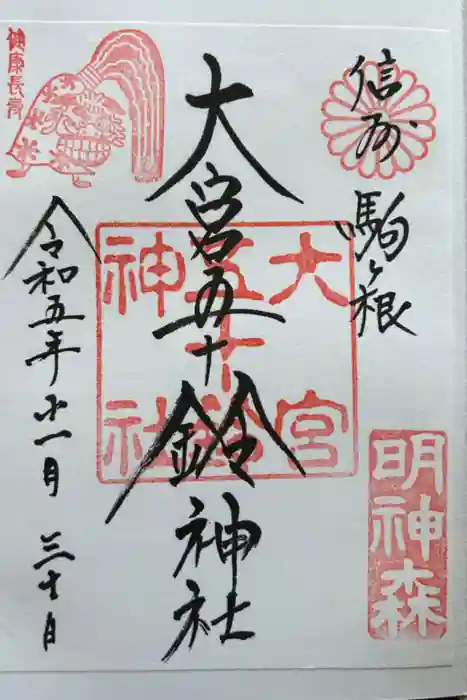 信州 駒ヶ根
明神森
大宮五十鈴神社
大宮
五十鈴
神社
令和五年 十一月 三十日
健康長寿